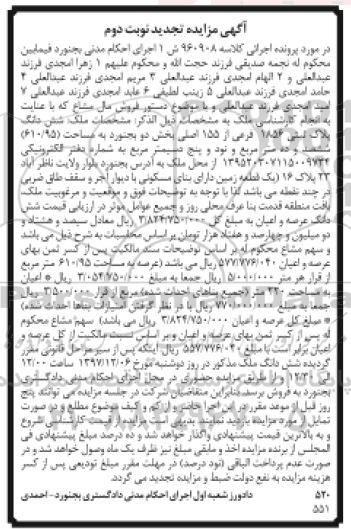 آگهی مزایده تجدید نوبت دوم
در مورد پرونده اجرائی کلاسه ۹۶۰۹۰۸ ش ۱ اجرای احکام مدنی بجنورد فیمابین
محکوم له نجمه صدیقی فرزند حجت الله و محکوم علیهم ۱ زهرا امجدی فرزند
عبدالعلی و ۲ الهام امجدی فرزند عبدالعلی ۳ مریم امجدی فرزند عبدالعلی ۴
حامد امجدی فرزند عبدالعلی ۵ زینب لطیفی ۶ عابد امجدی فرزند عبدالعلی ۷
امجدی فرزند عبدالعلی با موضوع دستور فروش مال مشاع که با عنایت
به انجام کارشناسی ملک به مشخصات ذیل الذکر: مشخصات ملک: شش دانگ
پلاک ثبتی ۷۸۵۶ فرعی از ۱۵۵ اصلی بخش دو بجنورد به مساحت (۶۱۰/۹۵)
ششصد و ده متر مربع و نود و پنج دسیمتر مربع به شماره دفتر الکترونیکی
۱۳۹۵۲۰۳۰۷۱۱۵۰۰۹۷۳۴ از محل ملک به آدرس بجنورد بلوار ولایت ناظر آباد
۲۳ پلاک ۱۶ (یک قطعه زمین دارای بنای مسکونی با دیوار آجر و سقف طاق ضربی
در چند نقطه می باشد لذا با توجه به توضیحات فوق و موقعیت و مرغوبیت ملک
بافت منطقه قدمت بنا عرف محلی روز و جمیع عوامل موثر در ارزیابی قیمت شش
دانگ عرصه و اعیان به مبلغ کل ۳/۸۲۴/۷۵۰/۰۰۰ ریال معادل سیصد و هشتاد و
دو میلیون و چهارصد و هفتاد هزار تومان بر اساس محاسبات به شرح ذیل می باشد
و سهم مشاع محکوم له بر اساس توضیحات سند مالکیت پس از کسر ثمن بهای
عرصه و اعیان ۵۷۷/۷۷۶/۰۴۰ ریال می باشد (عرصه به مساحت ۶۱۰/۹۵ متر مربع
از قرار هر متر ۵/۰۰۰/۰۰۰ ریال جمعا به مبلغ ۳/۰۵۴/۷۵۰/۰۰۰ ریال * اعیان
به مساحت ۲۲۰ متر (جمیع بناهای احداث شده) مربع از قرار ۳/۵۰۰/۰۰۰ ریال
جمعا به مبلغ ۷۷۰/۰۰۰/۰۰۰ ریال با در نظر گرفتن امتیازات بناها احداث شده)
* مبلغ کل عرصه و اعیان ۳/۸۲۴/۷۵۰/۰۰۰ ریال می باشد) سهم مشاع محکوم
له پس از کسر ثمن بهای عرصه و اعیان و بر اساس نسبت مالکیت از کل عرصه و
اعیان برابر است با مبلغ ۵۵۷/۷۷۶/۰۴۰ ریال اینکه پس از سیر مراحل قانونی مقرر
گردیده شش دانگ ملک مذکور در روز دوشنبه مورخ ۱۳۹۷/۱۲/۰۶ ساعت ۱۲/۰۰
الی ۱۲/۳۰ از طریق مزایده حضوری در محل اجرای احکام مدنی دادگستری
بجنورد به فروش برسد بنابراین متقاضیان شرکت در جلسه مزایده می توانند پنج
روز قبل از موعد مقرر در این اجرا حاضر و از کم و کیف موضوع مطلع و در صورت
تمایل از مورد مزایده بازدید نمایند بدیهی است مزایده از قیمت کارشناسی شروع
و به بالاترین قیمت پیشنهادی واگذار خواهد شد و ده درصد مبلغ پیشنهادی فی
المجلس از برنده مزایده اخذ و مابقی مبلغ نیز ظرف یک ماه وصول خواهد شد و در
صورت عدم پرداخت الباقی (نود درصد) در مهلت مقرر مبلغ تودیعی پس از کسر
هزینه مزایده به نفع دولت ضبط و مزایده تجدید می گردد.
۵۲۰ دادورز شعبه اول اجرای احکام مدنی دادگستری بجنورد- احمدی
۵۵۱